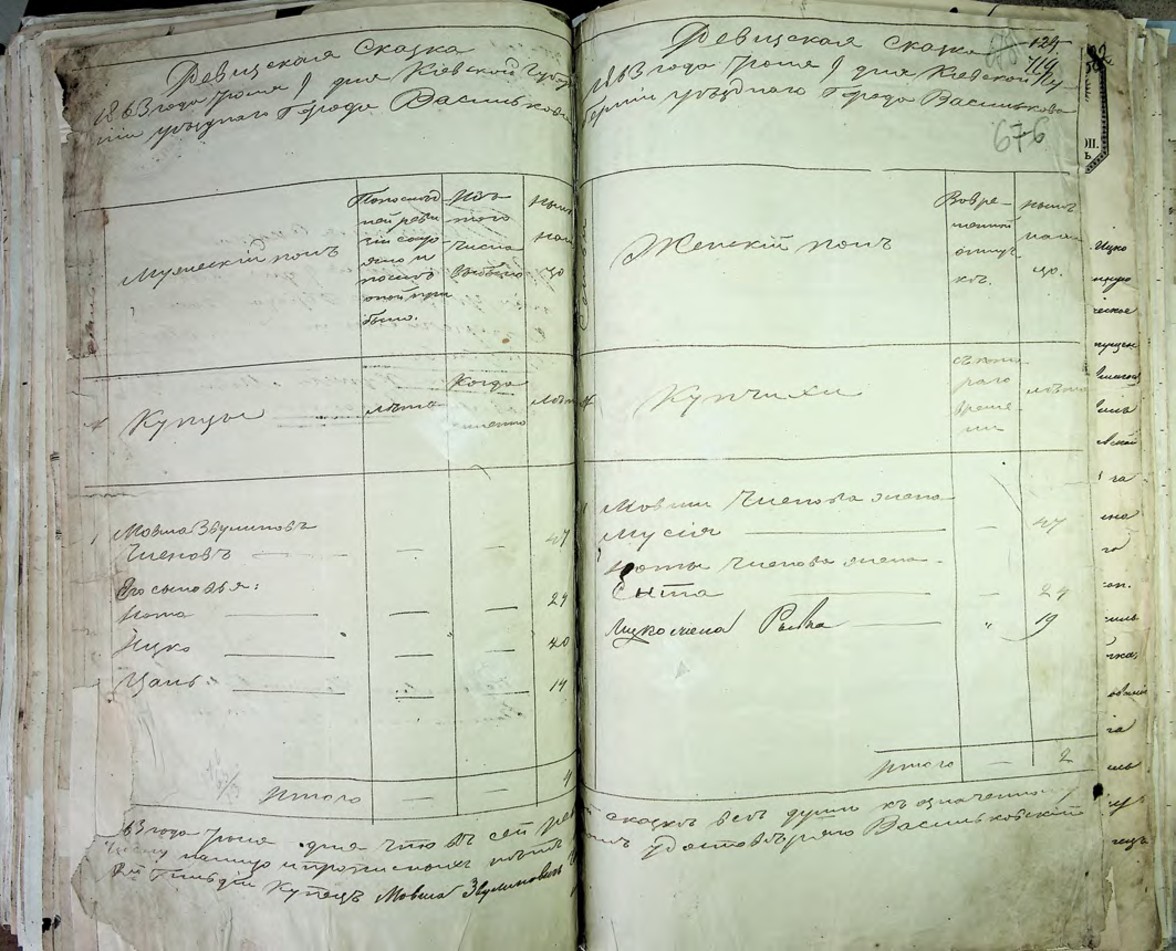 Ревизская Сказка
1863 года Іюня 9 дня Кіевской Губер
ніи уѣзднаго Города Василькова
Мужескій полъ
По послѣд
ней реви
зіи сост
ояло и
послѣ
оной при
было.
Изъ
того
числа
выбыло
Нынѣ
на ли
цо
Купцы
лѣта
Когда
именно
лѣта
1 Мовша Звулиновъ
Членовъ — — — 47
Его сыновья:
Нота — — — 29
Ицко — — — 20
Цаль — — — 14
Итого — — 4
63 года Іюня дня что въ сей ре
числу налицо и прописныхъ нѣтъ
Гильдіи Купецъ Мовша Звулиновичъ
Ревизская Сказка
125
1863 года Іюня 9 дня Кіевской Гу
берніи уѣзднаго Города Василькова
676
Женскій полъ
Вовре-
менной
отлуч
кѣ.
Нынѣ
на ли
цо.
Купчихи
съ кото
раго
време
ни
лѣта
1 Мовши Членова жена
Мусія — — 47
Ноты Членова жена
Сыта — — 24
Ицко жена Рывка — " 19
Итого — 2
сказкѣ всѣ души къ означенному
удостовѣряю Васильковскій